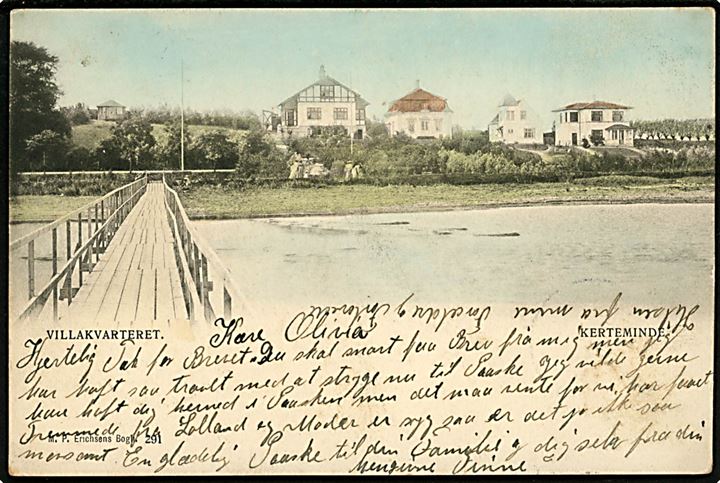 VILLAKVARTERET. KERTEMINDE
Kære Olivia
Hilsen fra mine Forældre og
Hjertelig Tak for Brevet. Du skal snart faa Brev fra mig men jeg
har haft saa travlt med at stryge nu til Paaske Jeg vilde gerne
han haft dig herned i Paasken men det maa vente for vi har faaet
Fremmede fra Lolland og Moder er syg saa er det jo ikke saa
M. P. Erichsens Bogh. 291
morsomt. En glædelig Paaske til din Familie og dig selv fra din
Veninde Sinne